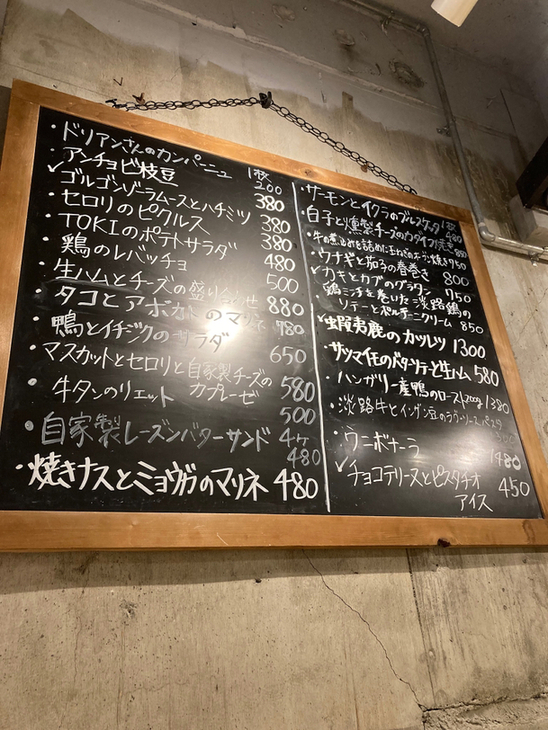 ・ドリアンさんのカンパーニュ 1枚 200
・アンチョビ枝豆 380
✓ゴルゴンゾーラムースとハチミツ 380
・セロリのピクルス 380
・TOKIのポテトサラダ 480
・鶏のレバッチョ 500
・生ハムとチーズの盛り合わせ 880
・タコとアボカドのマリネ 780
・鴨とイチジクのサラダ 650
・マスカットとセロリと自家製チーズの
カプレーゼ 580
・牛タンのリエット 500
・自家製レーズンバターサンド 4ヶ 480
・焼きナスとミョウガのマリネ 480
・サーモンとイクラのブルスケッタ 1枚 480
・白子と燻製チーズのカダイフ焼き
950
・ウナギと茄子の春巻き 800
✓カキとカブのグラタン 950
鶏ミンチを巻いた淡路鶏の
ソテーとポルチーニクリーム 850
✓蝦夷鹿のカツレツ 1300
・サツマイモのバターソテーと生ハム 580
・ハンガリー産鴨のロースト 200g 1380
・淡路牛とインゲン豆のラグーソースパスタ
・ウニボナーラ 1480
✓チョコテリーヌとピスタチオ
アイス 450